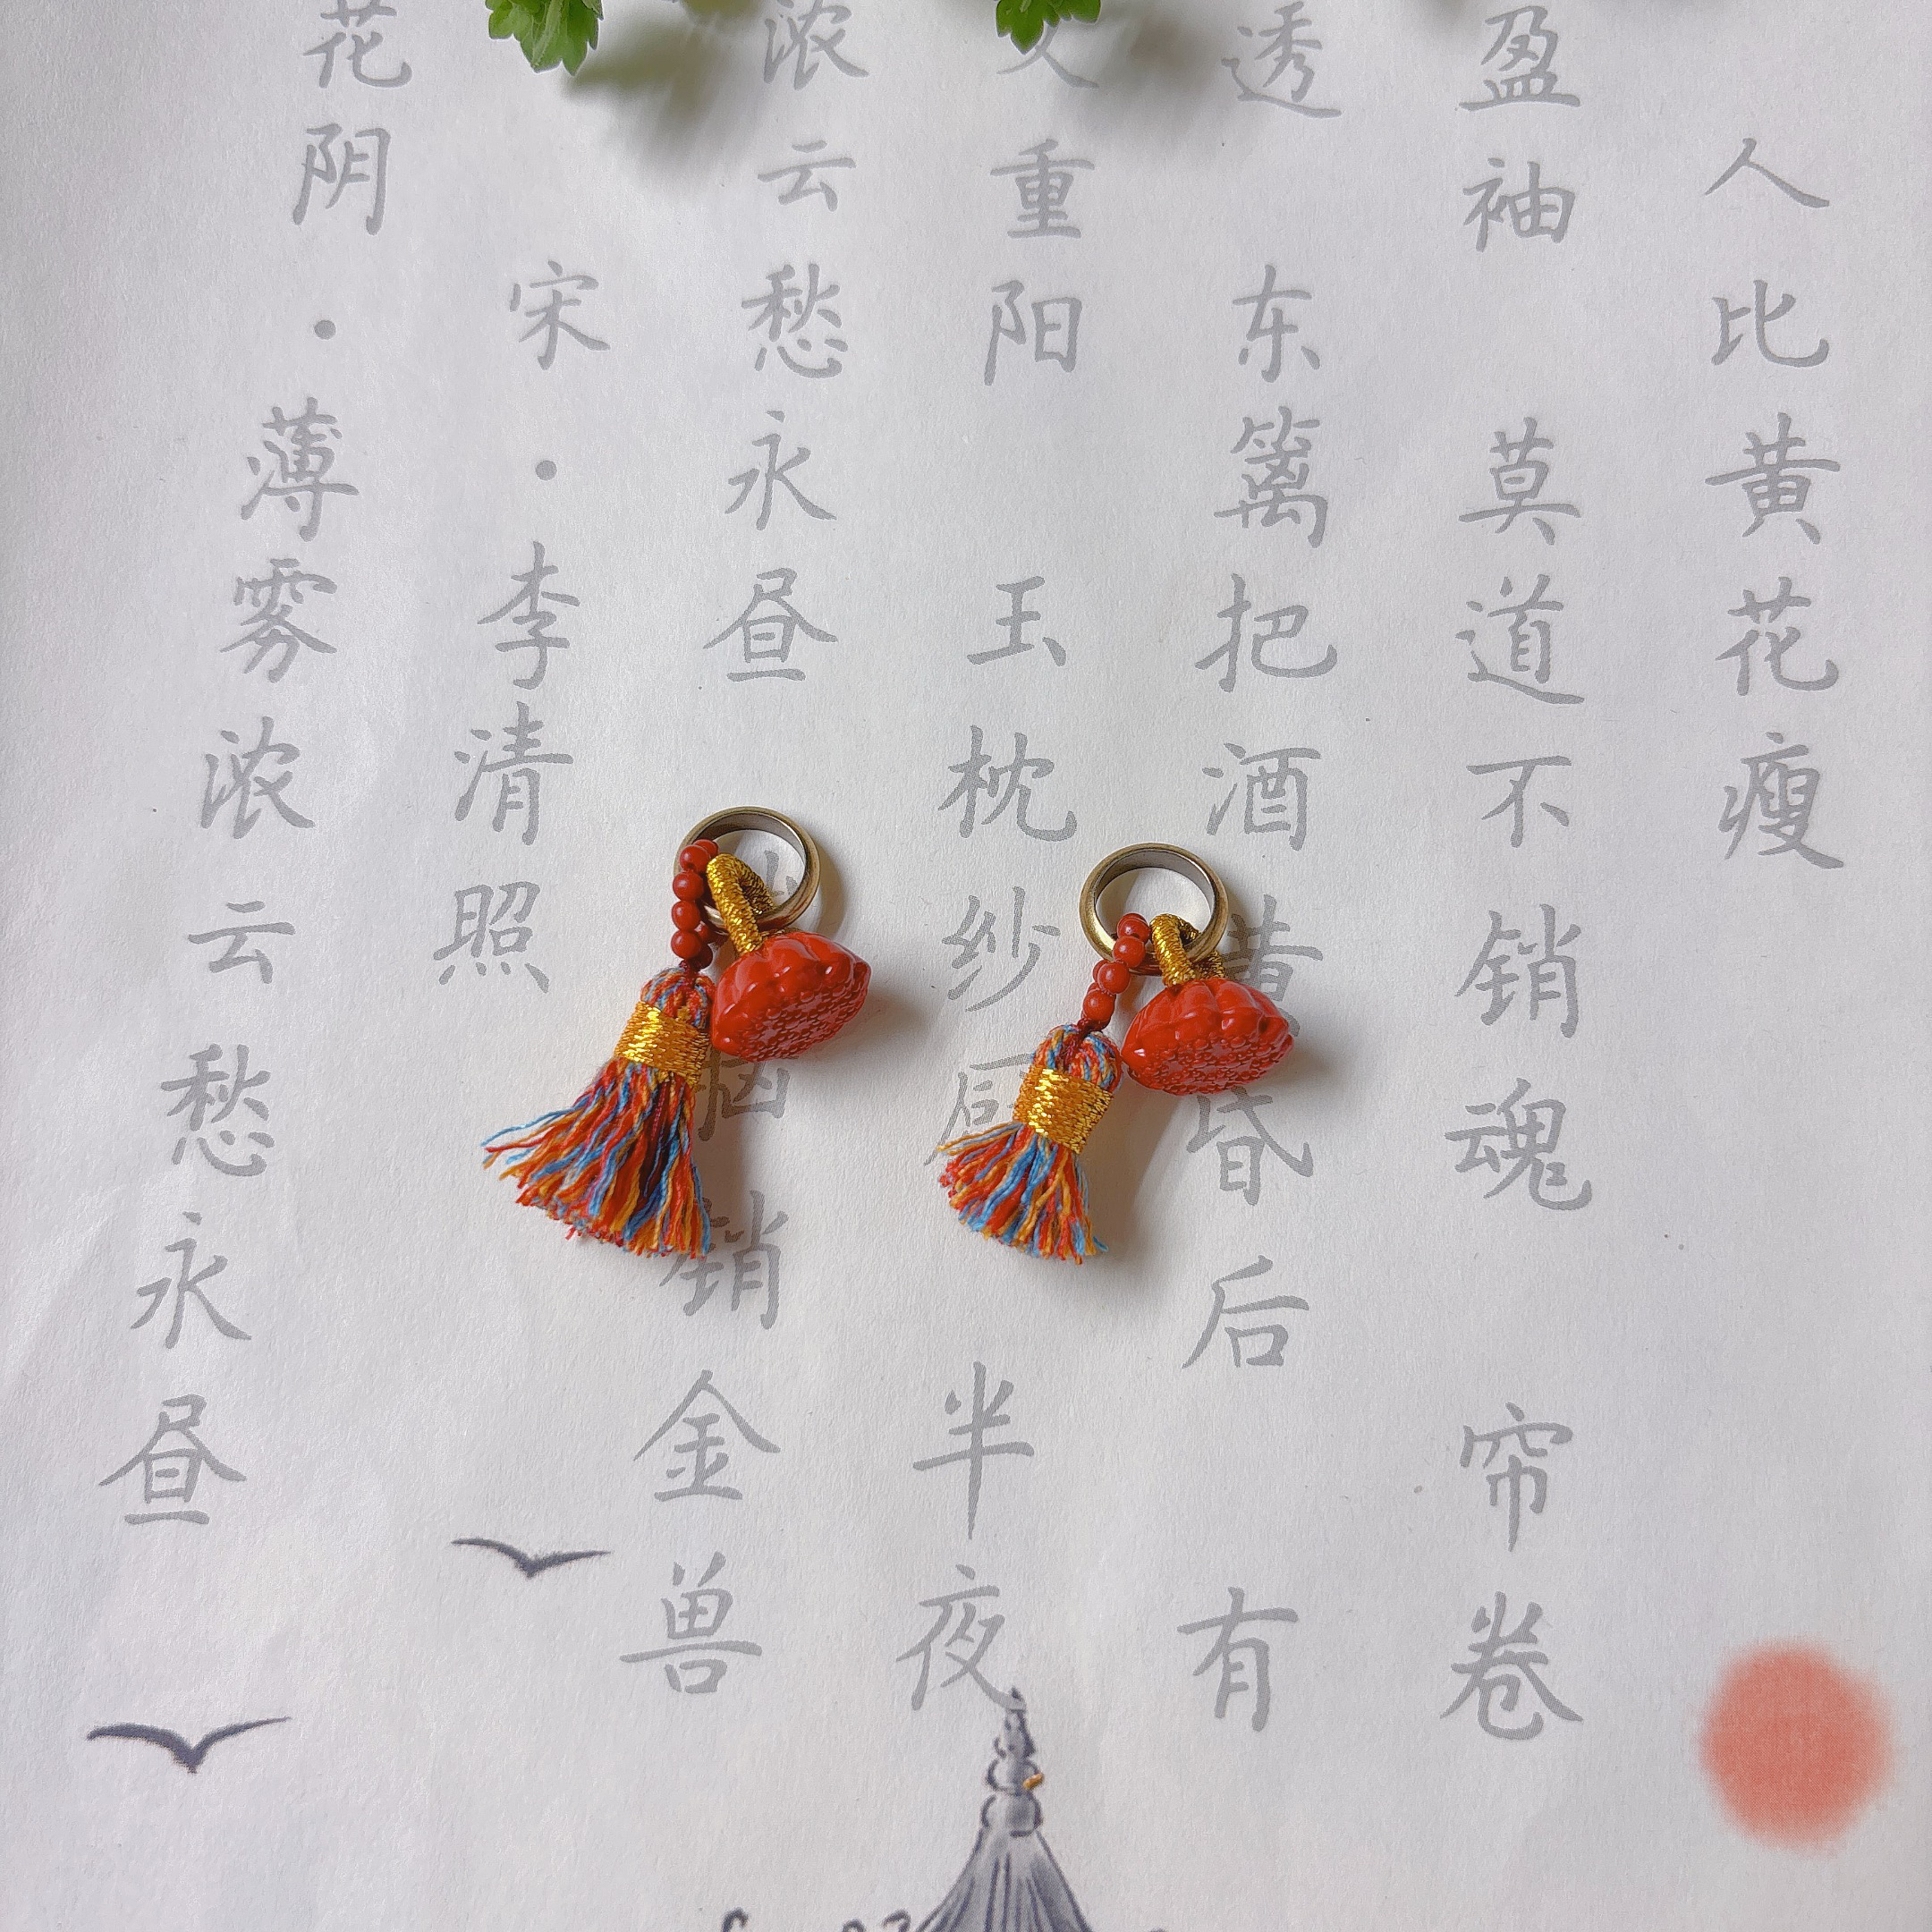 花阴·薄雾浓云愁永昼
宋·李清照
浓云愁永昼 脑销金兽
又重阳 玉枕纱厨 半夜
透 东篱把酒黄昏后 有
盈袖 莫道不销魂 帘卷
人比黄花瘦